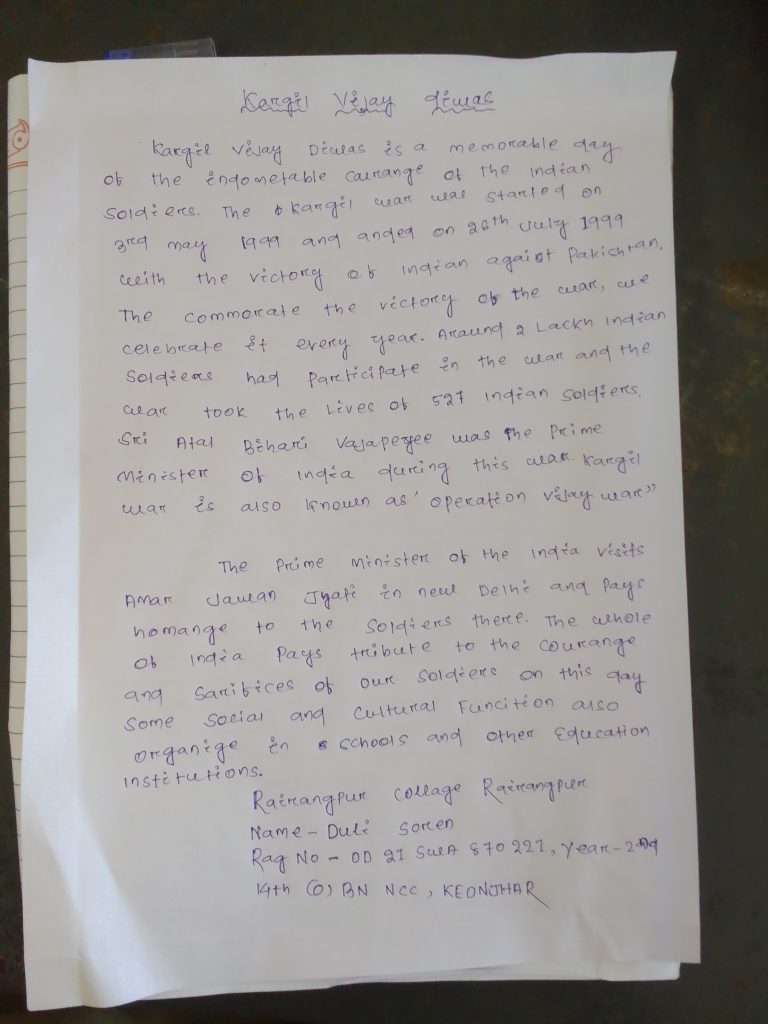 Kargil Vijay diwas
Kargil Vijay Diwas is a memorable day
of the indometable courange of the Indian
soldiers. The Kargil war was started on
3rd may 1999 and anded on 26th July 1999
with the victory of Indian against Pakishtan.
The commorate the victory of the war, we
celebrate it every year. Around 2 Lackh Indian
Soldiers had Participate in the war and the
war took the Lives of 527 Indian soldiers.
Sri Atal Bihari Vajapeyee was the Prime
Minister of India during this war. Kargil
war is also known as ' operation vijay war"
The Prime Minister of the India visits
Amar Jawan Jyati in new Delhi and Pays
homange to the Soldiers there. The whole
of India Pays tribute to the courange
and Sarifices of our soldiers on this day
Some Social and Cultural Function also
organige in schools and other Education
Institutions.
Rairangpur Collage Rairangpur
Name - Duli Soren
Rag No - OD 21 SWA 870 227, Year - 2nd
14th (O) BN NCC, KEONJHAR